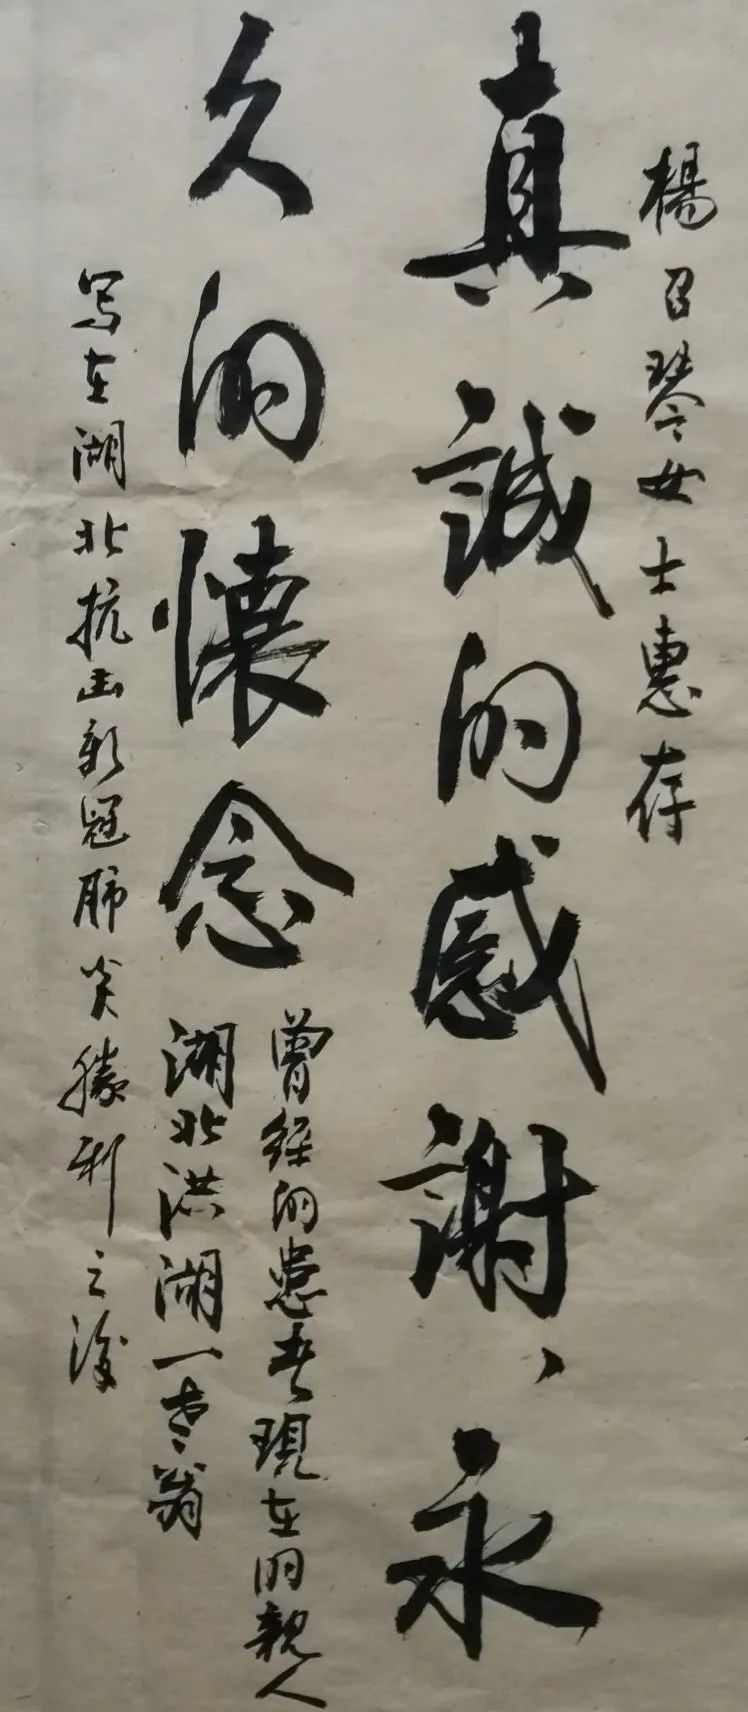 楊召琴女士惠存
真誠的感謝、永
久的懷念
曾經的患者現在的親人
湖北洪湖一老翁
写在湖北抗击新冠肺炎勝利之後